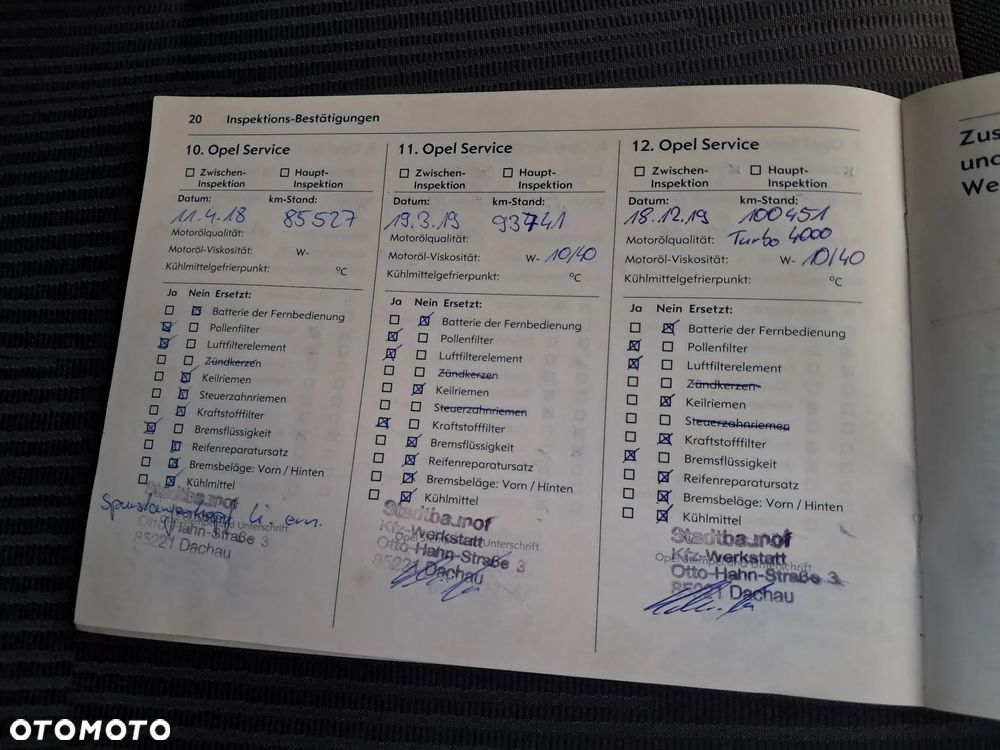 20 Inspektions-Bestätigungen
10. Opel Service
Zwischen-Inspektion Haupt-Inspektion
Datum: km-Stand:
11.4.18 85527
Motorölqualität:
Motoröl-Viskosität: W-
Kühlmittelgefrierpunkt: °C
Ja Nein Ersetzt:
Batterie der Fernbedienung
Pollenfilter
Luftfilterelement
Zündkerzen
Keilriemen
Steuerzahnriemen
Kraftstofffilter
Bremsflüssigkeit
Reifenreparatursatz
Bremsbeläge: Vorn / Hinten
Kühlmittel
Stadtbauhof
Spurstangenkopf li. ern.
Otto-Hahn-Straße 3
85221 Dachau
11. Opel Service
Zwischen-Inspektion Haupt-Inspektion
Datum: km-Stand:
19.3.19 93741
Motorölqualität:
Motoröl-Viskosität: W- 10/40
Kühlmittelgefrierpunkt: °C
Ja Nein Ersetzt:
Batterie der Fernbedienung
Pollenfilter
Luftfilterelement
Zündkerzen
Keilriemen
Steuerzahnriemen
Kraftstofffilter
Bremsflüssigkeit
Reifenreparatursatz
Bremsbeläge: Vorn / Hinten
Kühlmittel
Stadtbauhof
Kfz-Werkstatt
Otto-Hahn-Straße 3
85221 Dachau
12. Opel Service
Zwischen-Inspektion Haupt-Inspektion
Datum: km-Stand:
18.12.19 100451
Motorölqualität: Turbo 4000
Motoröl-Viskosität: W- 10/40
Kühlmittelgefrierpunkt: °C
Ja Nein Ersetzt:
Batterie der Fernbedienung
Pollenfilter
Luftfilterelement
Zündkerzen
Keilriemen
Steuerzahnriemen
Kraftstofffilter
Bremsflüssigkeit
Reifenreparatursatz
Bremsbeläge: Vorn / Hinten
Kühlmittel
Stadtbauhof
Kfz-Werkstatt
Opel-Stempel und Unterschrift
Otto-Hahn-Straße 3
85221 Dachau
Zus
und
We
OTOMOTO